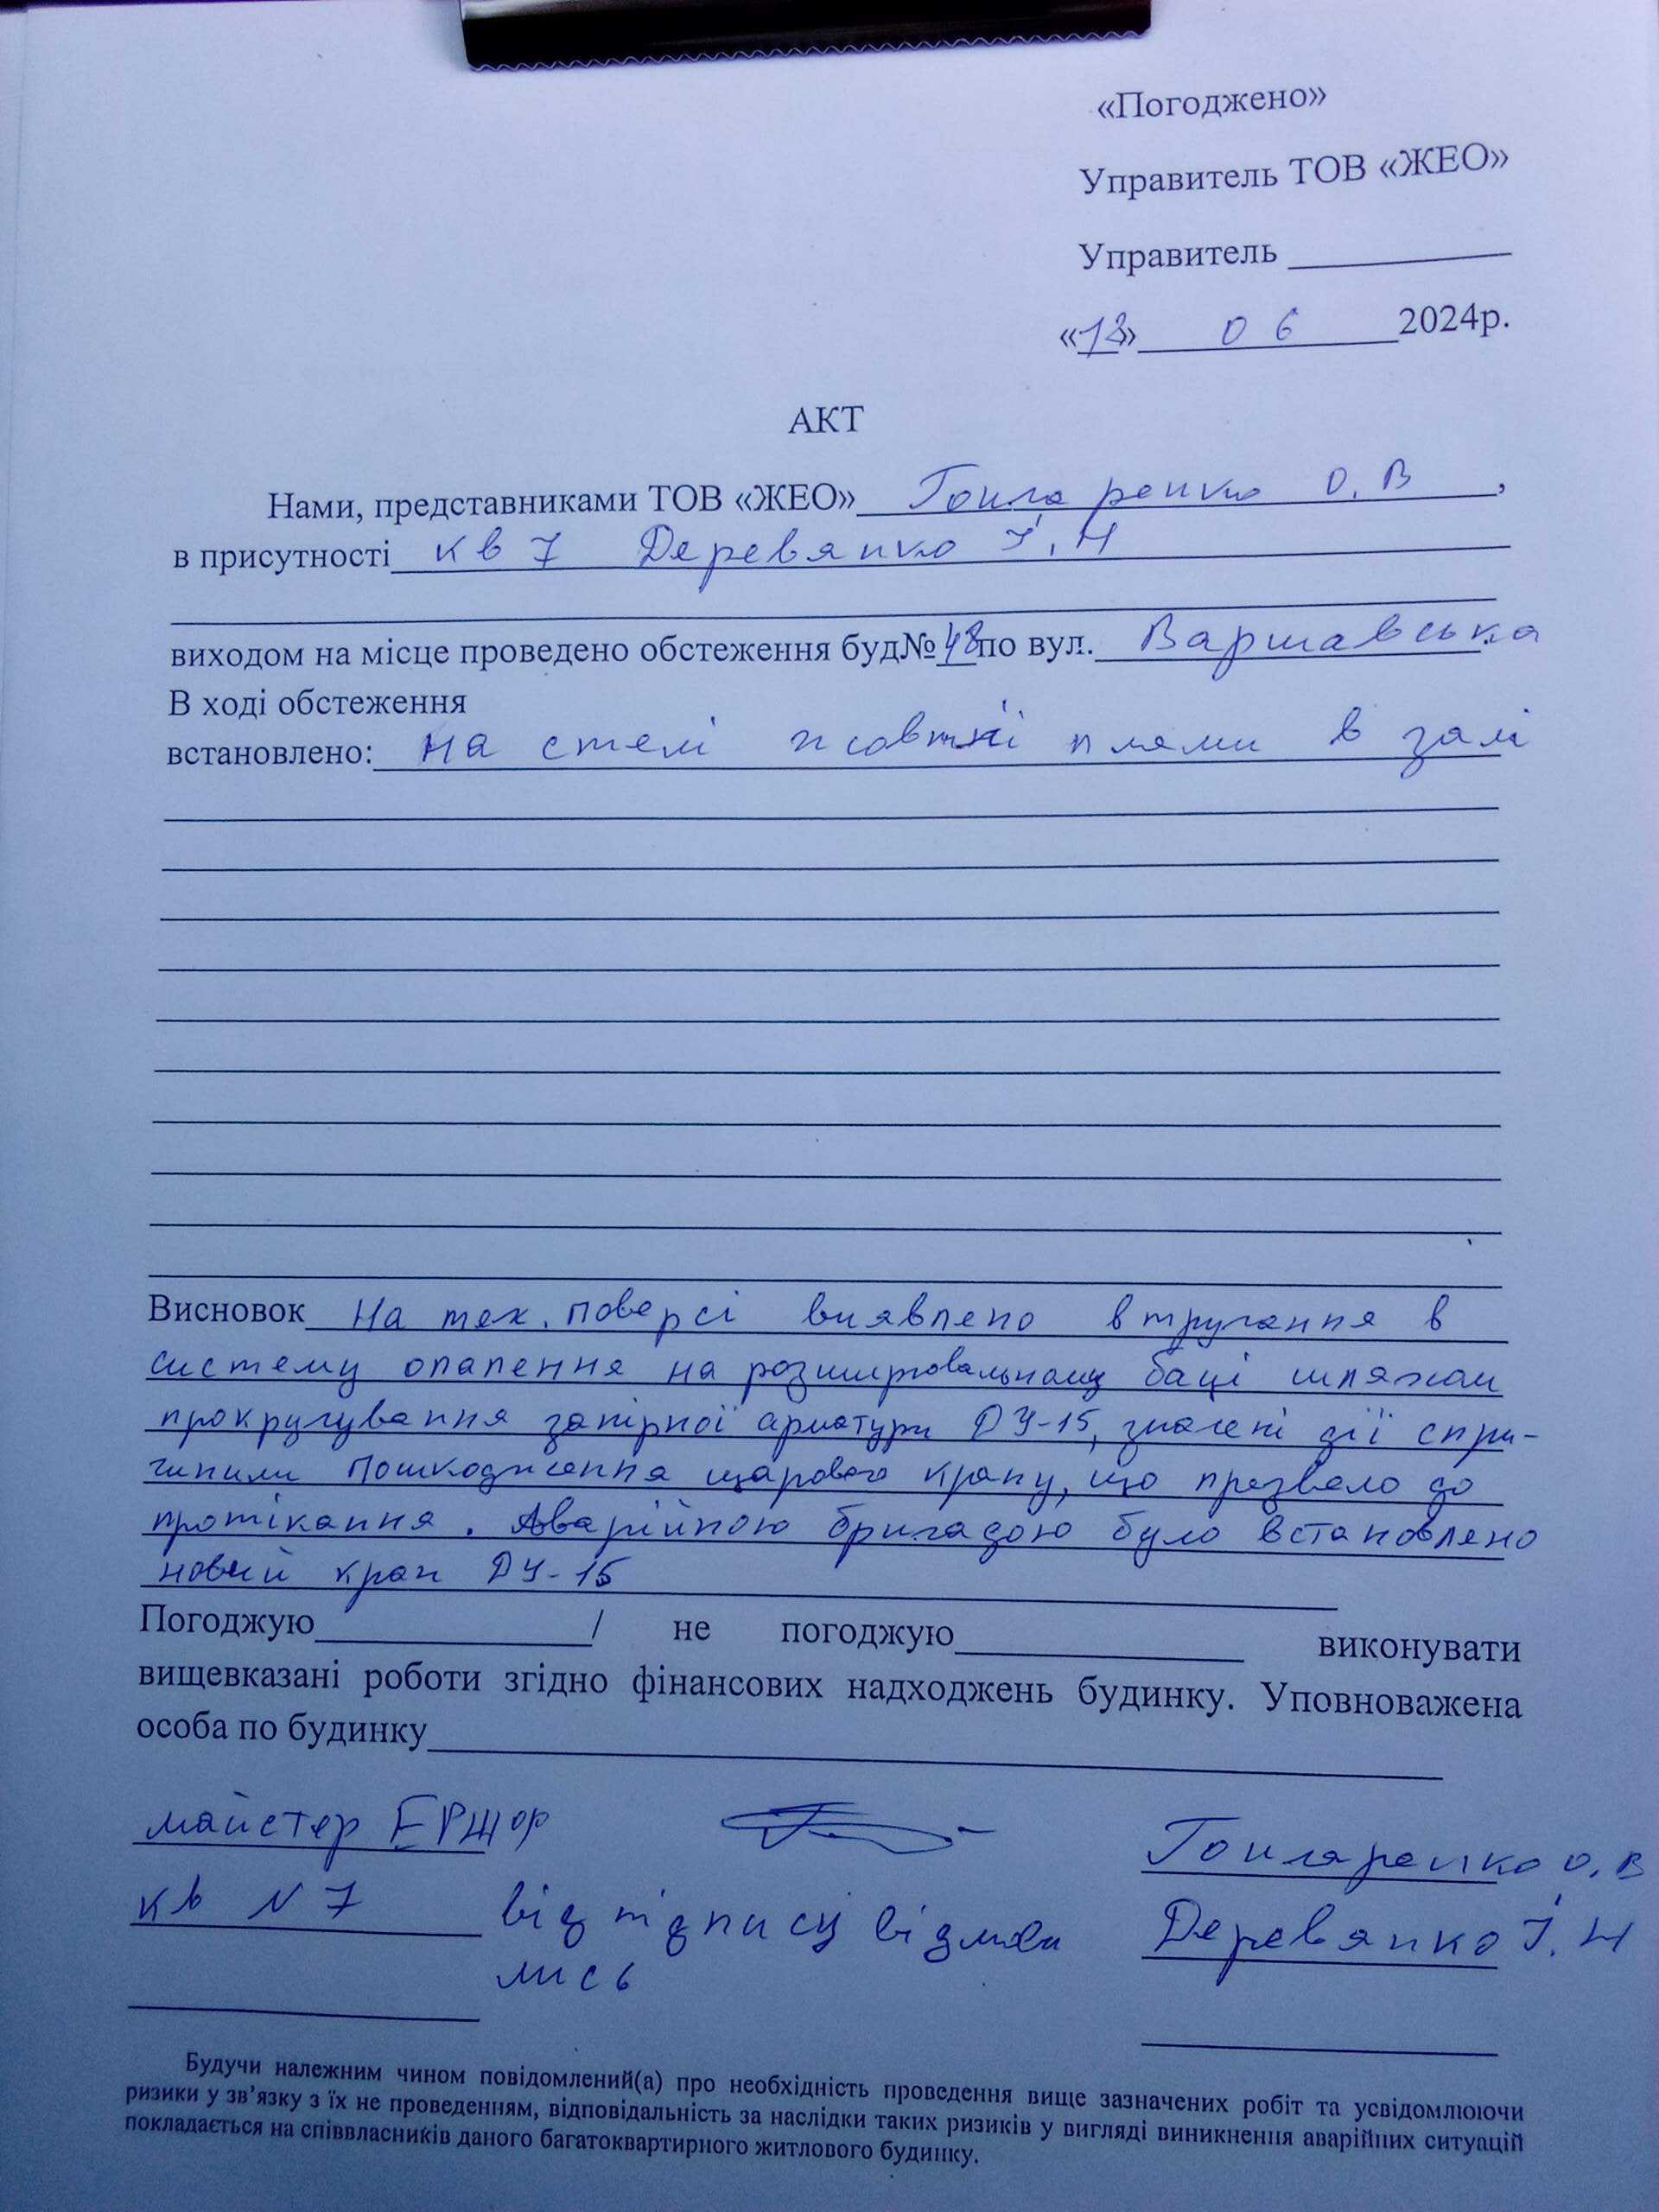 «Погоджено»
Управитель ТОВ «ЖЕО»
Управитель
«13» 06 2024р.
АКТ
Нами, представниками ТОВ «ЖЕО» Гончаренко О.В,
в присутності кв 7 Деревянко І.Н
виходом на місце проведено обстеження буд№48 по вул. Варшавська
В ході обстеження
встановлено: На стелі жовтні плями в залі
Висновок На тех. поверсі виявлено втручання в
систему опалення на розширювальному баці шляхом
прокручування запірної арматури ДУ-15, значені дії спри-
чинили пошкодження шарового крану, що призвело до
протікання. Аварійною бригадою було встановлено
новий кран ДУ-15
Погоджую / не погоджую виконувати
вищевказані роботи згідно фінансових надходжень будинку. Уповноважена
особа по будинку
майстер Гончаренко О.В
кв N 7 від підпису відмови Деревянко І.Н
лись
Будучи належним чином повідомлений(а) про необхідність проведення вище зазначених робіт та усвідомлюючи
ризики у зв'язку з їх не проведенням, відповідальність за наслідки таких ризиків у вигляді виникнення аварійних ситуацій
покладається на співвласників даного багатоквартирного житлового будинку.